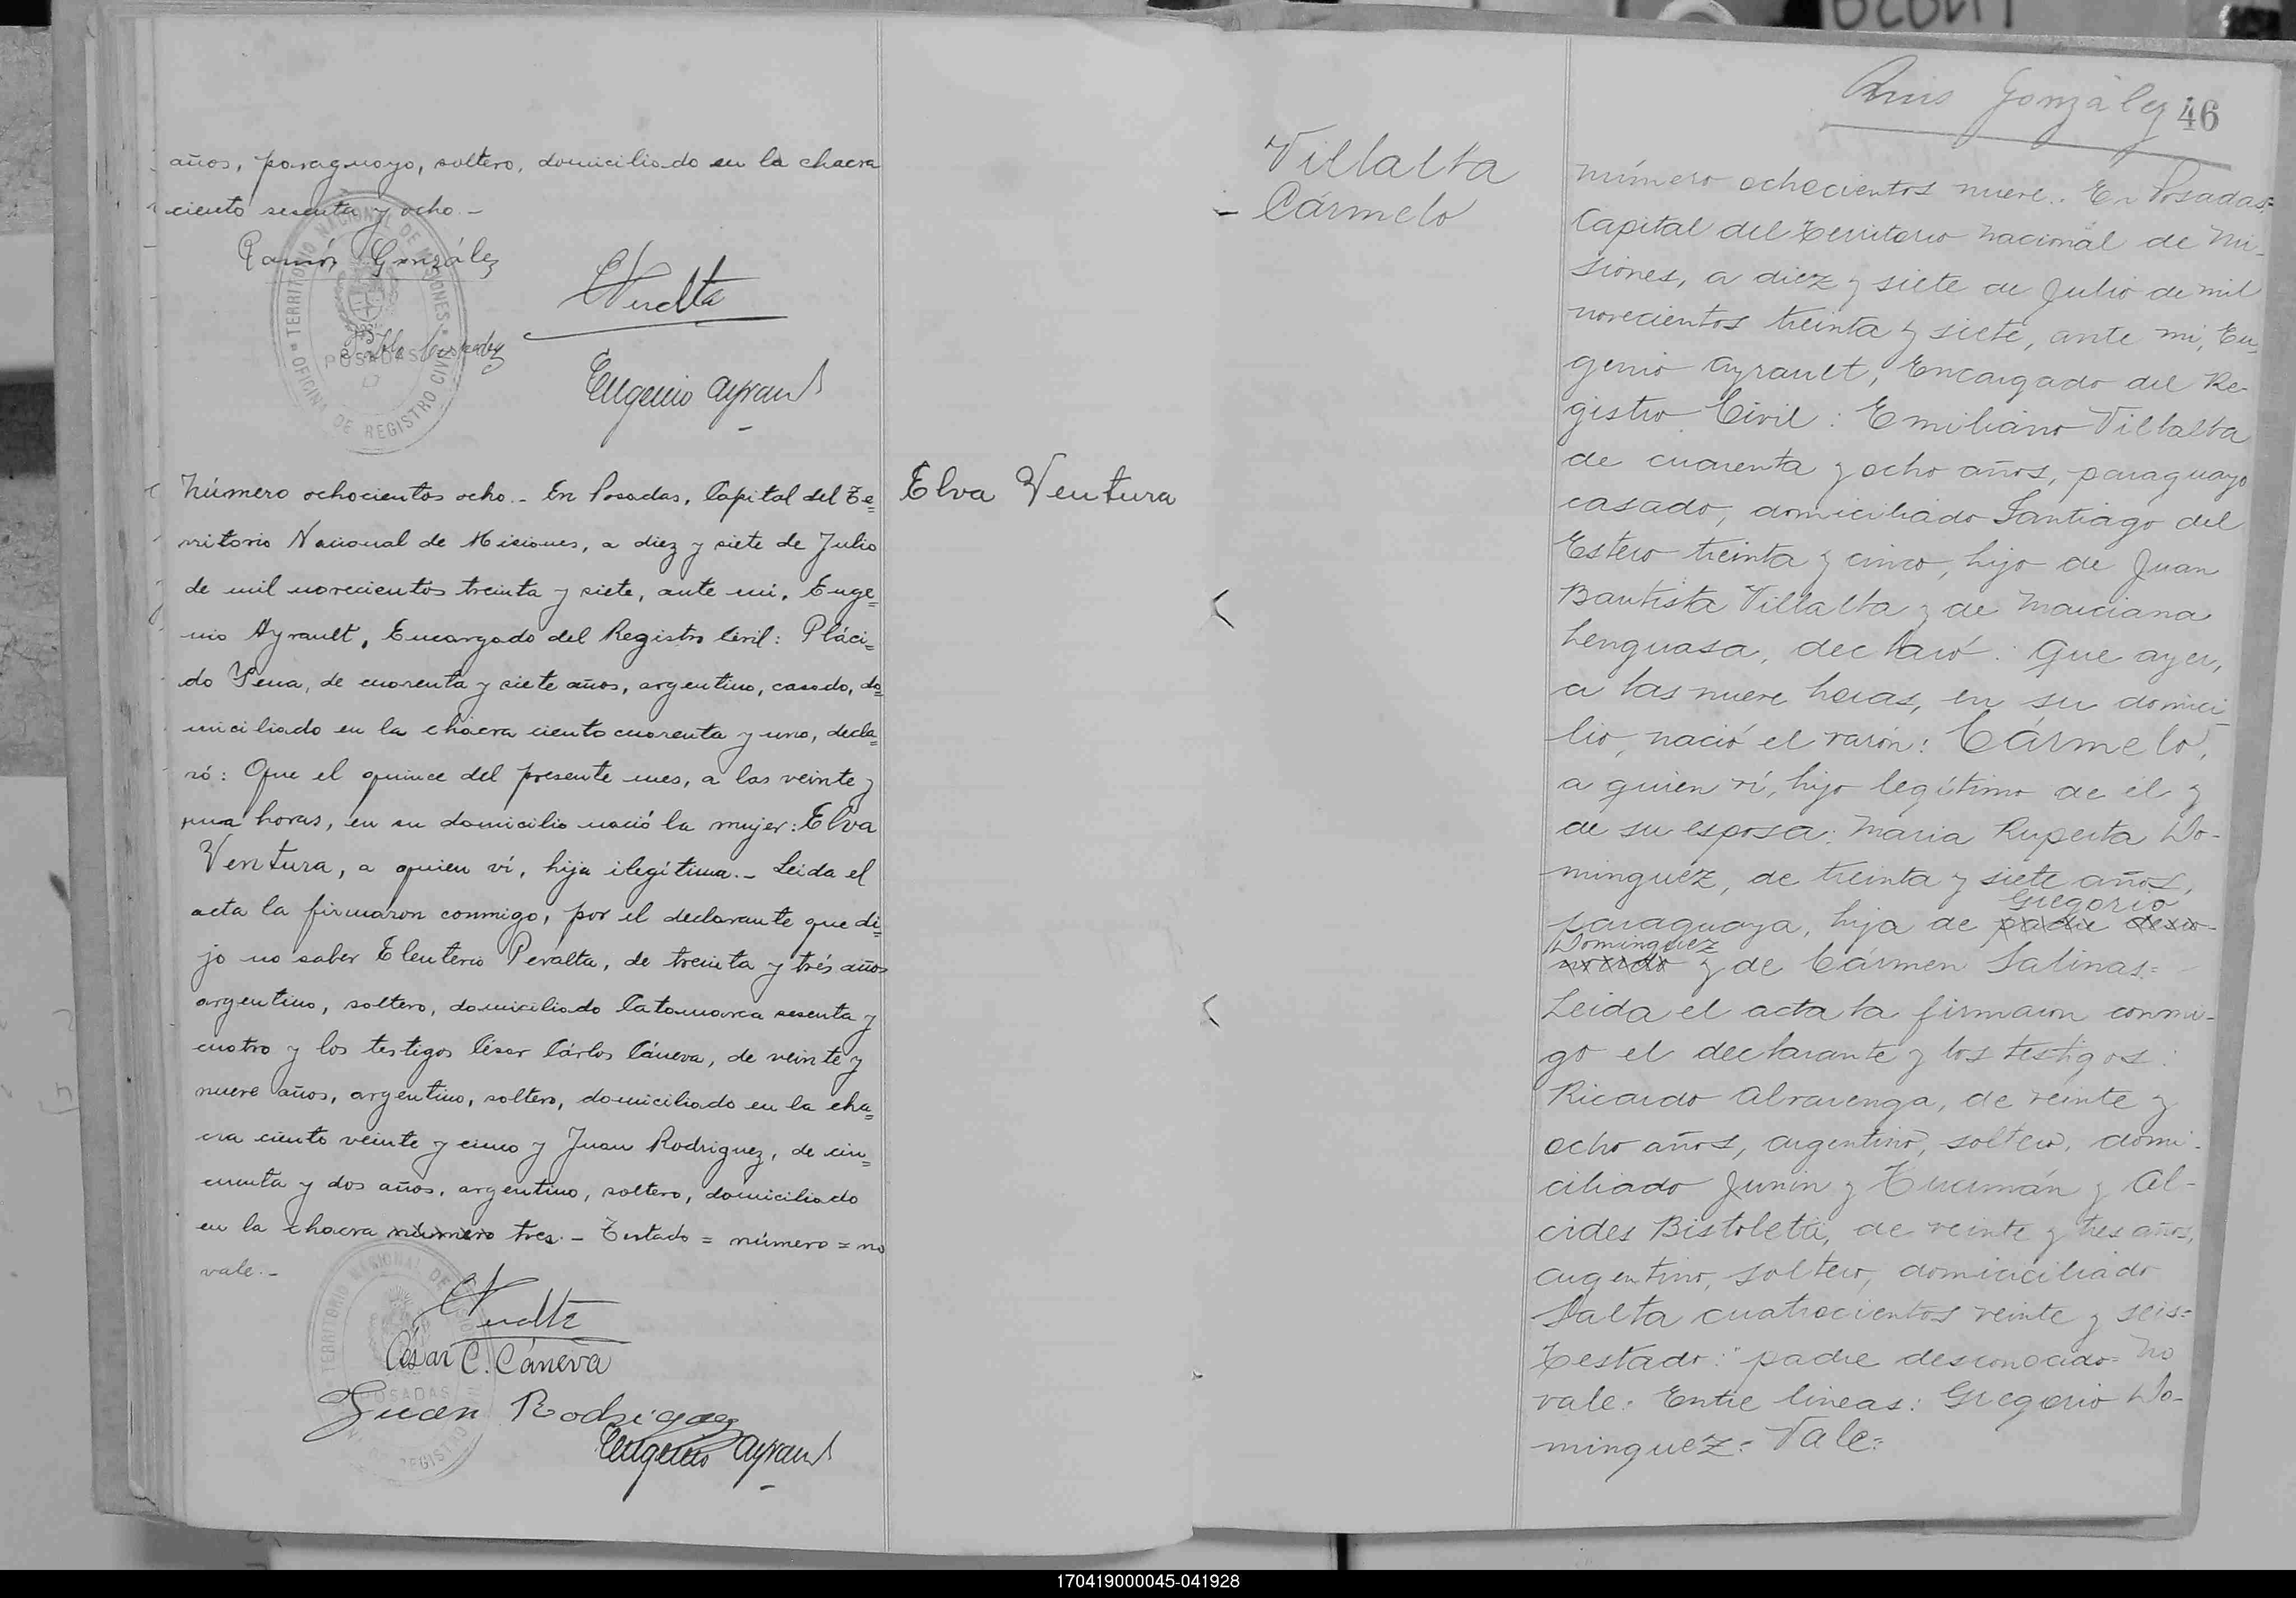 años, paraguayo, soltero, domiciliado en la chacra
ciento sesenta y ocho.-
Ramón González
TERRITORIO NACIONAL DE MISIONES
POSADAS
OFICINA DE REGISTRO CIVIL
Eugenio Ayrault
Número ochocientos ocho.- En Posadas, Capital del Te=
rritorio Nacional de Misiones, a diez y siete de Julio
de mil novecientos treinta y siete, ante mi, Euge=
nio Ayrault, Encargado del Registro Civil: Pláci=
do Pena, de cuarenta y siete años, argentino, casado, do=
miciliado en la chacra ciento cuarenta y uno, decla=
ró: Que el quince del presente mes, a las veinte y
una horas, en su domicilio nació la mujer: Elva
Ventura, a quien ví, hija ilegítima.- Leida el
acta la firmaron conmigo, por el declarante que di=
jo no saber Eleuterio Peralta, de treinta y trés años
argentino, soltero, domiciliado Catamarca sesenta y
cuatro y los testigos César Cárlos Cáneva, de veinte y
nueve años, argentino, soltero, domiciliado en la cha=
cra ciento veinte y cinco y Juan Rodriguez, de cin=
cuenta y dos años, argentino, soltero, domiciliado
en la chacra número tres.- Testado = número = no
vale.-
César C. Cáneva
Juan Rodriguez
Eugenio Ayrault
TERRITORIO NACIONAL DE
POSADAS
Elva Ventura
Villalba
- Cármelo
González 46
Número ochocientos nueve.. En Posadas=
Capital del Territorio Nacional de Mi-
siones, a diez y siete de Julio de mil
novecientos treinta y siete, ante mi, Eu-
genio Ayrault, Encargado del Re-
gistro Civil: Emiliano Villalba
de cuarenta y ocho años, paraguayo
casado, domiciliado Santiago del
Estero treinta y cinco, hijo de Juan
Bautista Villalba y de Marciana
Lenguasa, declaró: Que ayer,
a las nueve horas, en su domici-
lio, nació el varón: Cármelo,
a quien ví, hijo legítimo de él y
de su esposa: Maria Ruperta Do-
minguéz, de treinta y siete años,
Gregorio
paraguaya, hija de padre desco-
Dominguez
nocido y de Cármen Salinas=
Leida el acta la firmaron conmi-
go el declarante y los testigos:
Ricardo Alvarenga, de veinte y
ocho años, argentino, soltero, domi-
ciliado Junin y Tucumán y Al-
cides Bistoletti, de veinte y tres años,
argentino, soltero, domiciciliado
Salta cuatrocientos veinte y seis=
Testado: "padre desconocido= No
vale= Entre lineas: Gregorio Do-
minguez= Vale=
170419000045-041928